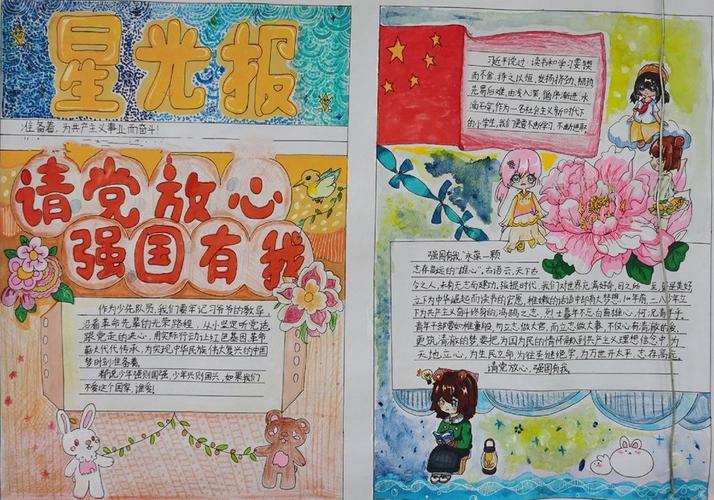 星光报
准备着,为共产主义事业而奋斗!
请党放心
强国有我
作为少先队员,我们要牢记习爷爷的教导,
沿着革命先辈的光荣路程,从小坚定听党话
跟党走的决心,用实际行动让红色基因、革命
薪火代代传承,为实现中华民族伟大复兴的中国
梦时刻准备着。
都说少年强则国强,少年兴则国兴,如果我们
不爱这个国家,谁爱!
习近平说过:读书和学习要锲
而不舍,持之以恒,发扬挤劲、
先易后难、由浅入深,循序渐进,水
滴石穿,作为一名社会主义新时代下
的小学生,我们更要不断学习,不断进取
强国有我 永葆一颗
志存高远的"雄心",古语云,天下古
今之人,未有无志而建功,
立下为中华崛起而读书的宏愿,
下为共产主义奋斗终身的鸿鹄之志,
青年干部要如稚童般,勿立志做大官,而立志做大事,不仅心有高歌的
更筑高歌的梦要把为国为民的情怀融到共产主义理想信念中,为
天地立心,为生民立命,为往圣继绝学,为万世开太平,志存高远,
请党放心,强国有我